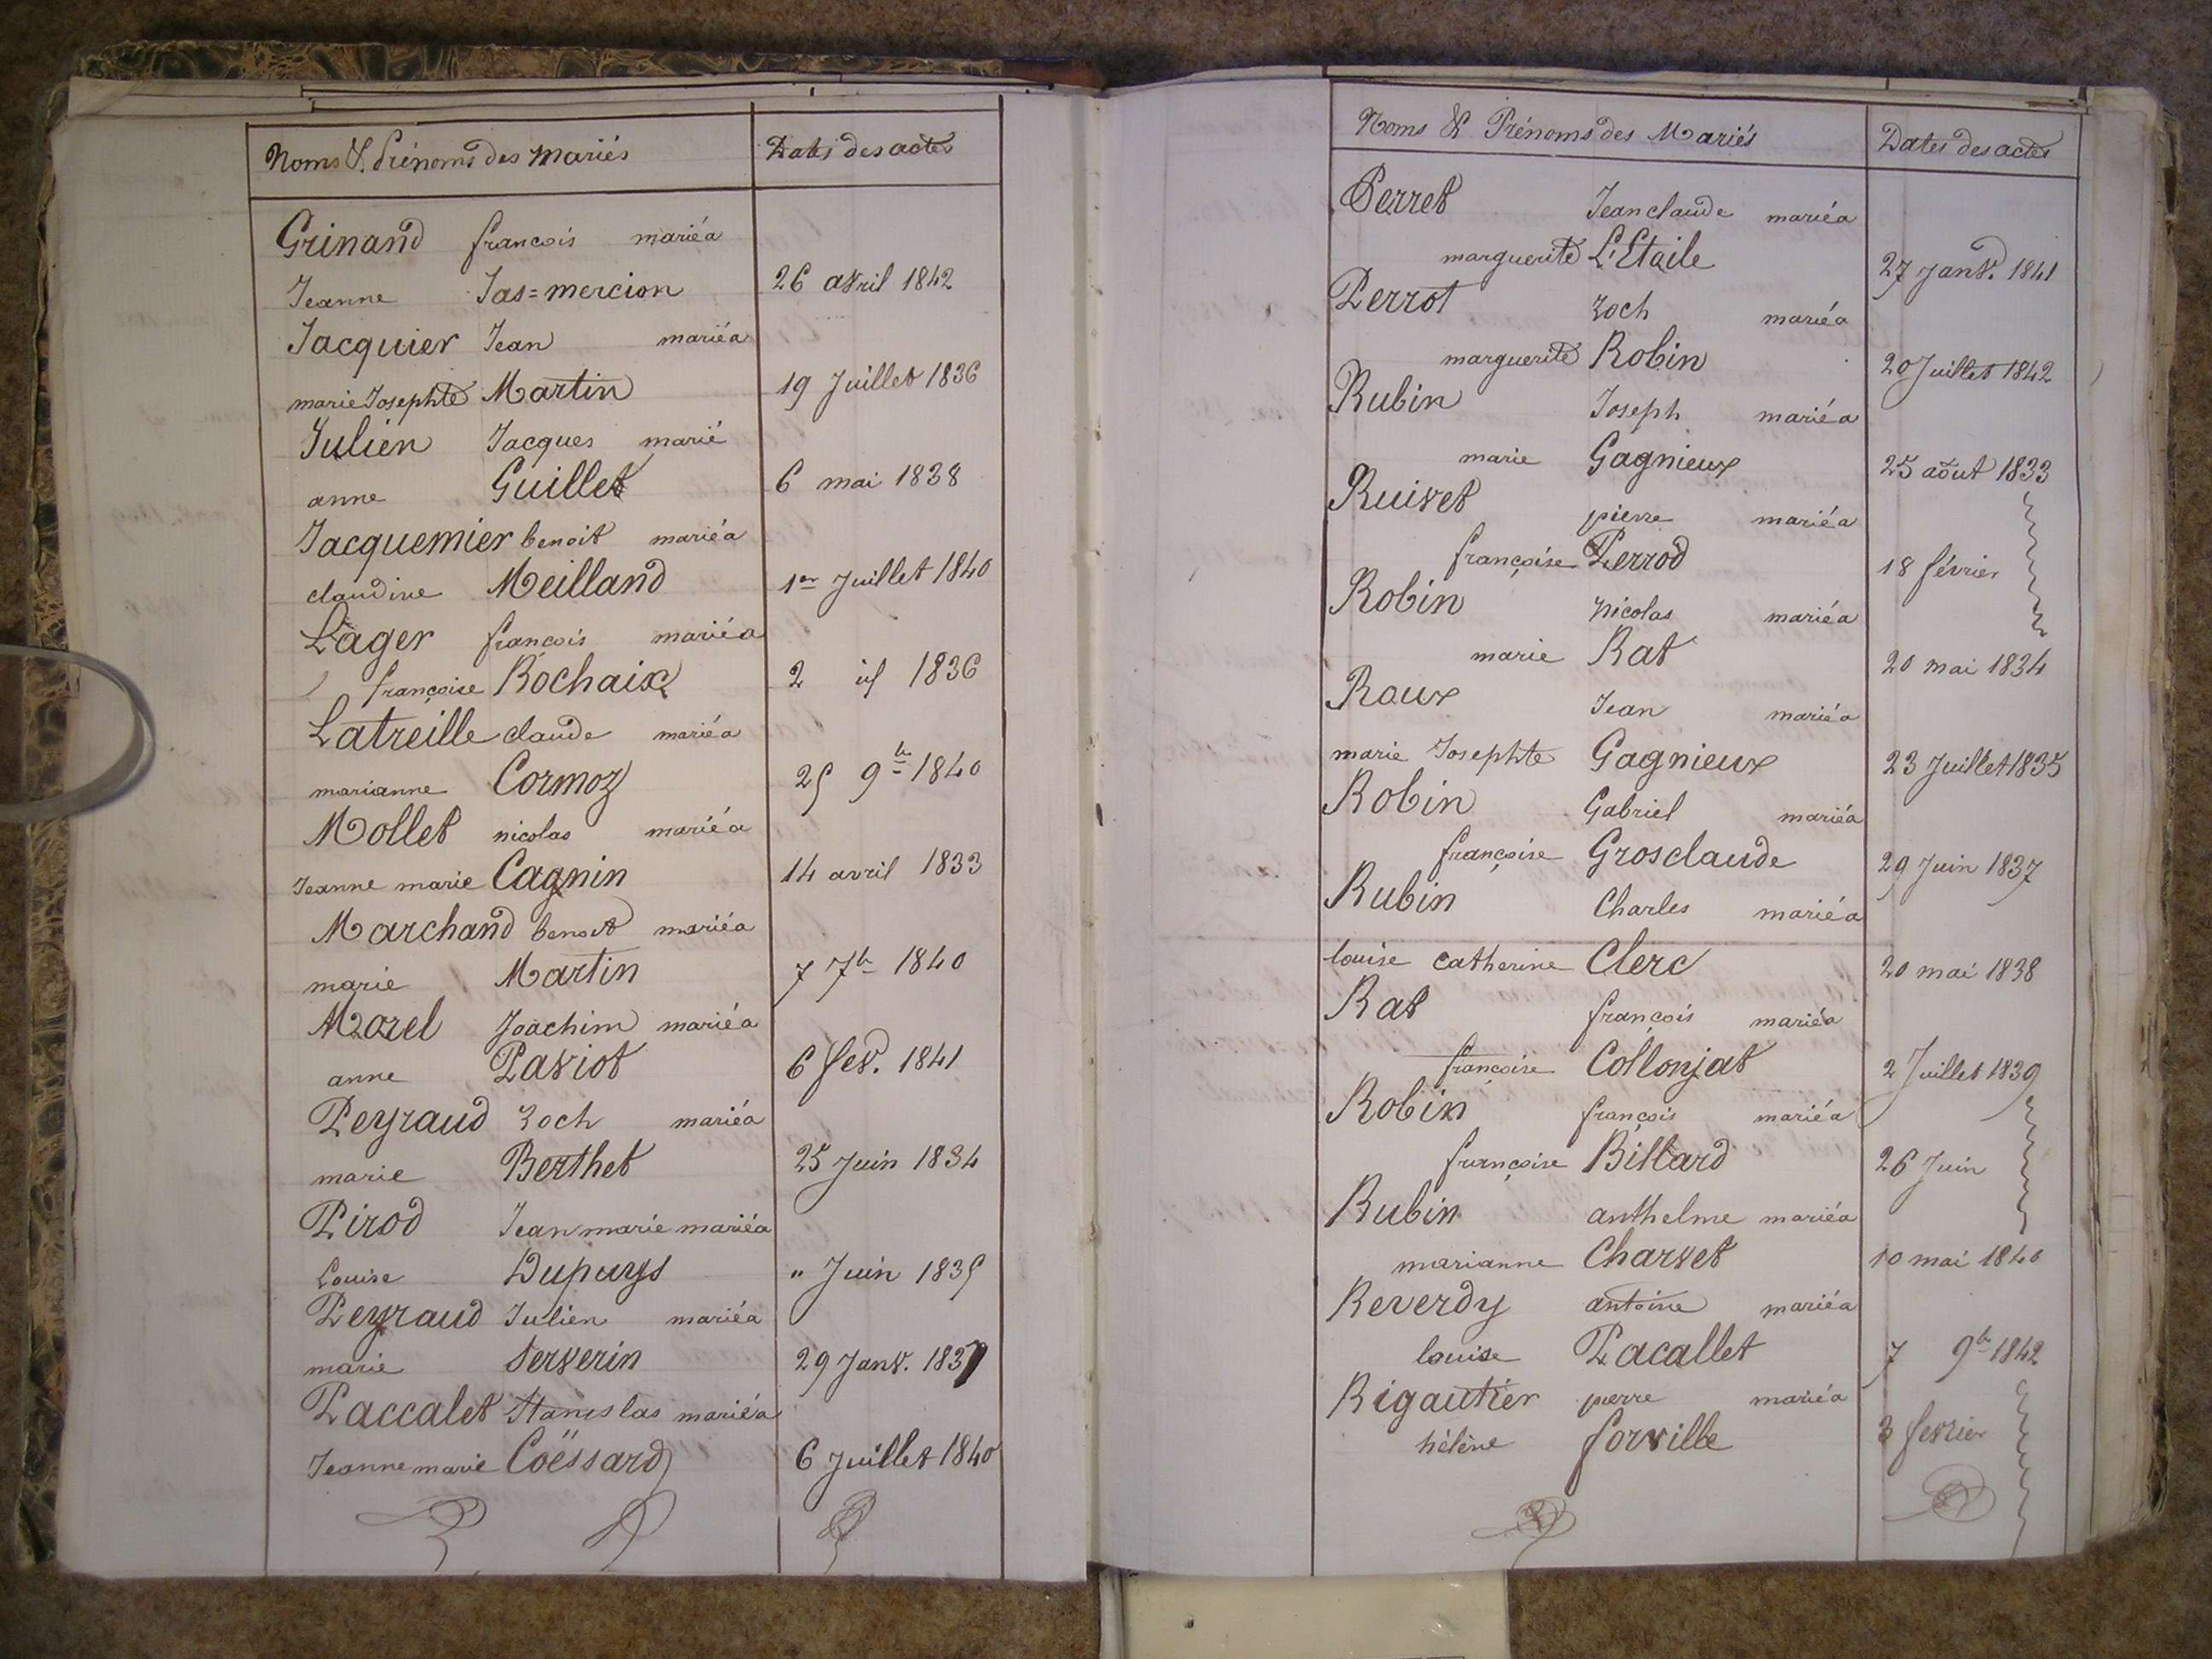 Noms & Prénoms des Mariés Dates des actes
Grinand françois marié a
Jeanne Jas=mercion 26 avril 1842
Jacquier Jean marié a
marie Josephte Martin 19 Juillet 1836
Julien Jacques marié
anne Guillet 6 mai 1838
Jacquemier benoit marié a
claudine Meilland 1er Juillet 1840
Lager françois marié a
françoise Rochaix 2 id 1836
Latreille claude marié a
marianne Cormoz 25 9b 1840
Mollet nicolas marié a
Jeanne marie Cagnin 14 avril 1833
Marchand benoit marié a
marie Martin 7 7b 1840
Morel Joachim marié a
anne Paviot 6 fev. 1841
Peyraud roch marié a
marie Berthet 25 Juin 1834
Pirod Jean marie marié a
Louise Dupuys " Juin 1835
Peyraud Julien marié a
marie Serverin 29 Janv. 1837
Paccalet Stanislas marié a
Jeanne marie Coëssard 6 Juillet 1840
Noms & Prénoms des Mariés Dates des actes
Perret Jean claude marié a
marguerite L'Etaile 27 Janv. 1841
Perrot roch marié a
marguerite Robin 20 Juillet 1842
Rubin Joseph marié a
marie Gagnieux 25 août 1833
Ruivet pierre marié a
françoise Perrod 18 février
Robin nicolas marié a
marie Rat 20 mai 1834
Roux Jean marié a
marie Josephte Gagnieux 23 Juillet 1835
Robin Gabriel marié a
françoise Grosclaude 29 Juin 1837
Rubin Charles marié a
louise catherine Clerc 20 mai 1838
Rat françois marié a
françoise Collonjat 2 Juillet 1839
Robin françois marié a
françoise Billard 26 Juin
Rubin anthelme marié a
marianne Charvet 10 mai 1840
Reverdy antoine marié a
louise Pacallet 7 9b 1842
Rigautier pierre marié a
hélène forville 3 fevrier